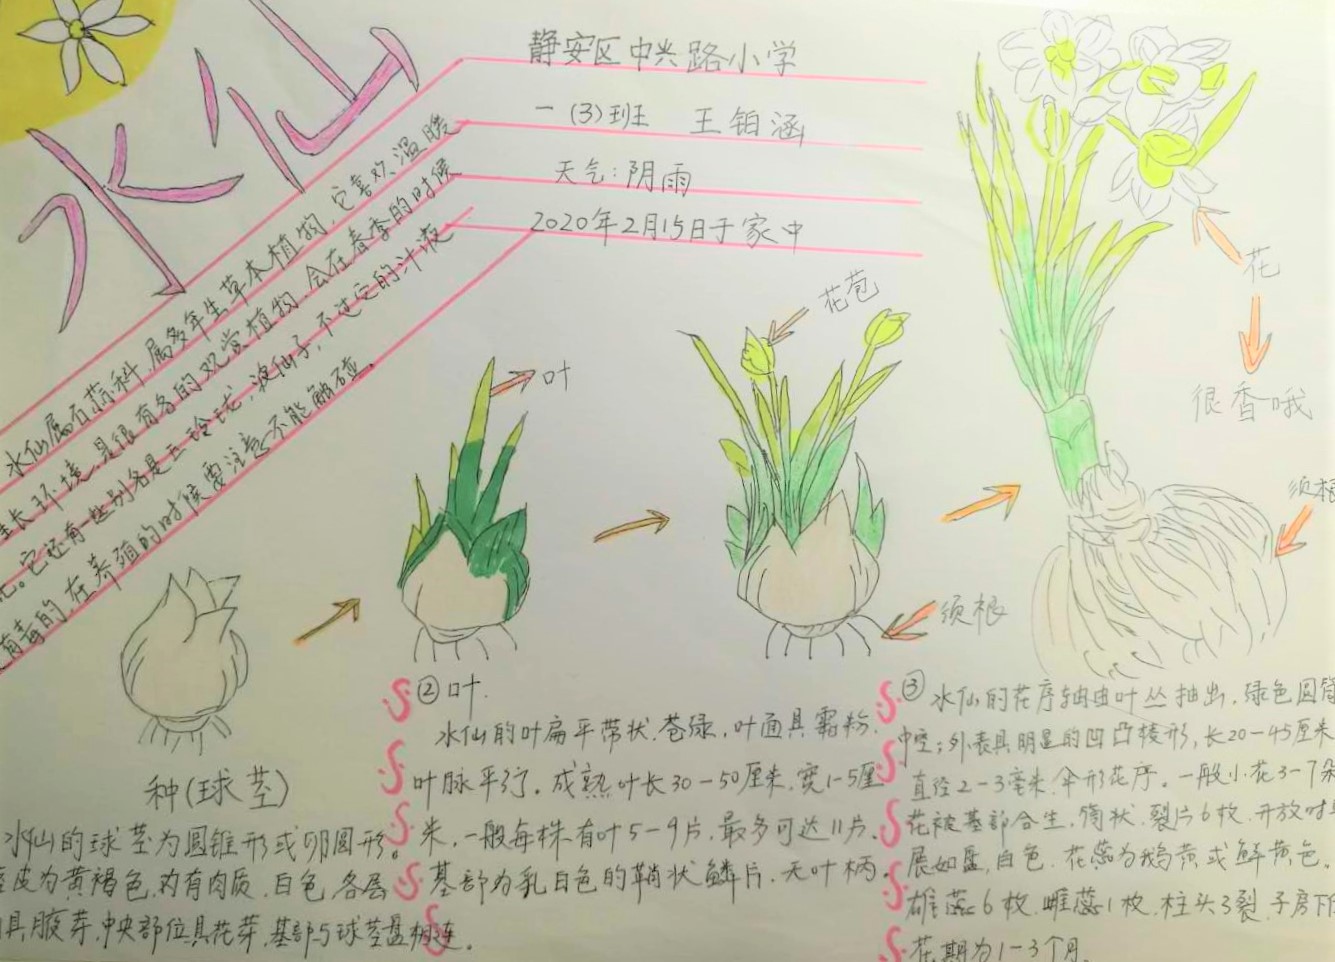 水仙
静安区中兴路小学
一(3)班 王铂涵
天气:阴雨
2020年2月15日于家中
水仙属石蒜科,属多年生草本植物,它喜欢温暖
生长环境,是很有名的观赏植物,会在春季的时候
花。它还有些别名是玉玲珑,凌仙子,不过它的汁液
有毒的,在养殖的时候需注意不能触碰。
花
很香哦
花苞
叶
须根
须根
种(球茎)
水仙的球茎为圆锥形或卵圆形。
皮为黄褐色,内有肉质,白色,各层
具腋芽,中央部位具花芽,基部与球茎盘相连。
②叶.
水仙的叶扁平带状,苍绿,叶面具霜粉,
叶脉平行。成熟叶长30-50厘米,宽1-5厘
米,一般每株有叶5-9片,最多可达11片,
基部为乳白色的鞘状鳞片,无叶柄。
③水仙的花序轴由叶丛抽出,绿色圆筒
中空;外表具明显的凹凸棱形,长20-45厘米
直径2-3毫米,伞形花序。一般小花3-7朵
花被基部合生,筒状,裂片6枚,开放时
展如盘,白色,花蕊为鹅黄或鲜黄色。
雄蕊6枚,雌蕊1枚,柱头3裂,子房下
花期为1-3个月